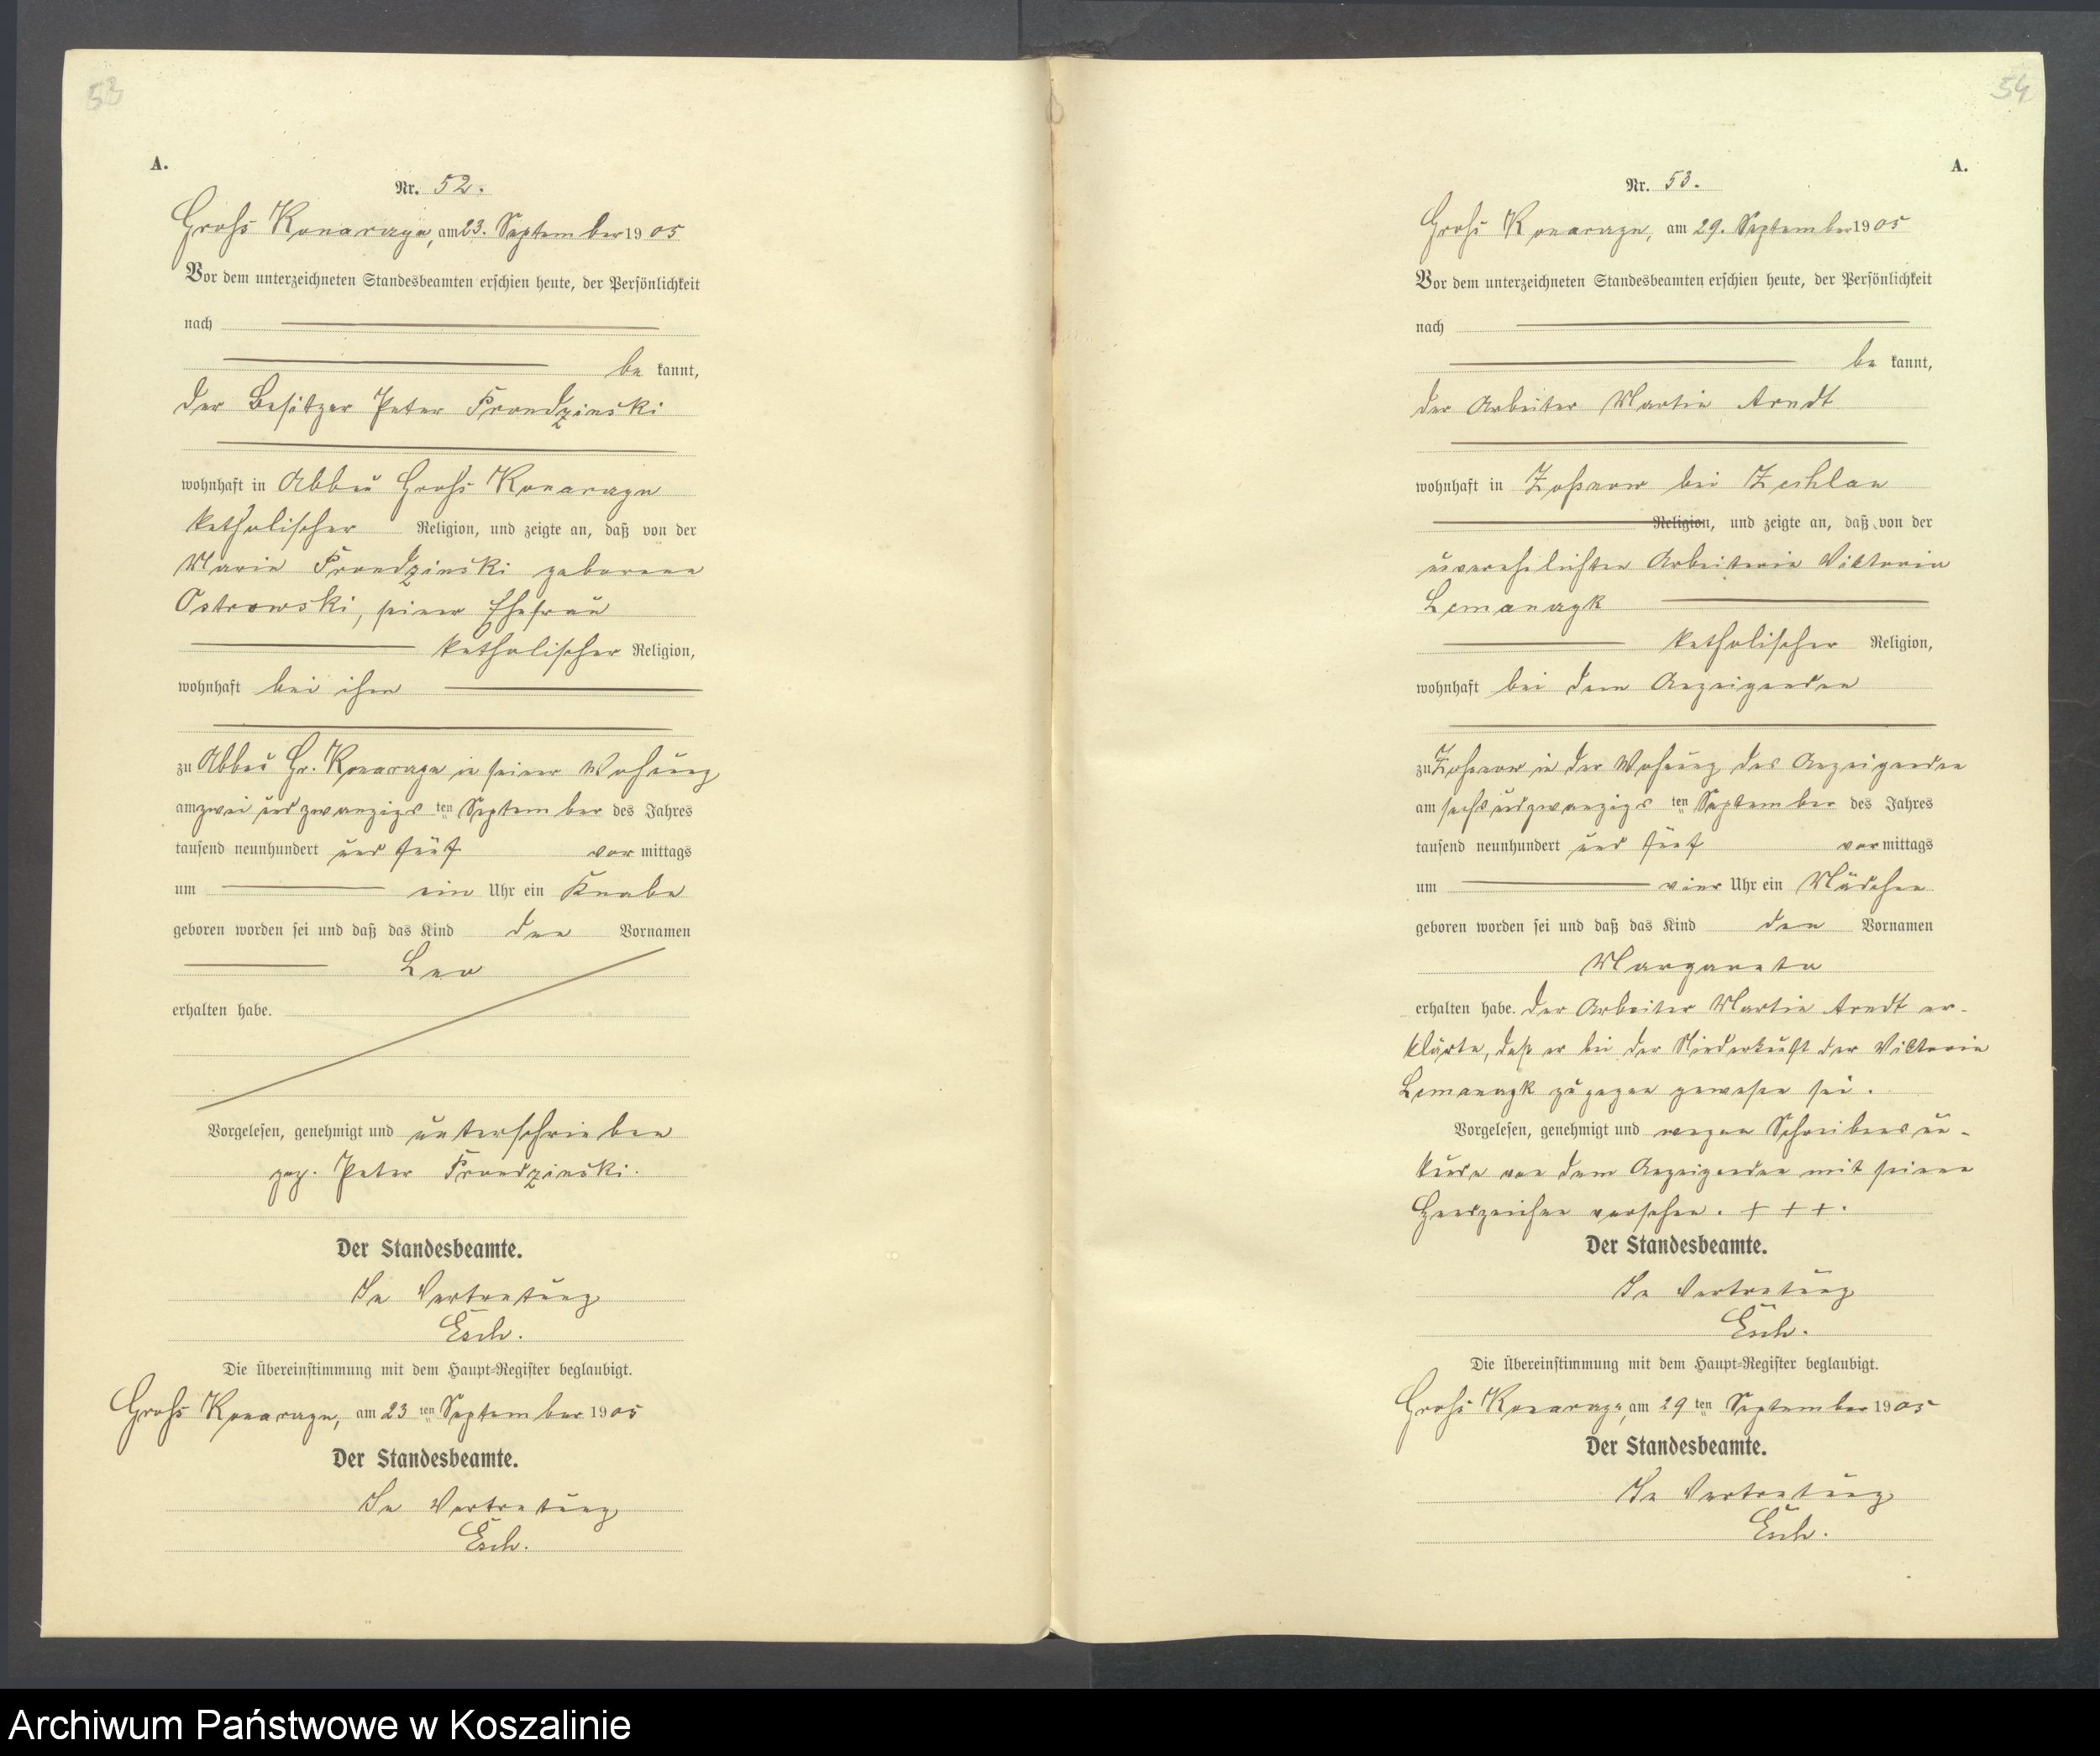 53
A.
Nr. 52.
Groß Konarczyn, am 23. September 1905
Vor dem unterzeichneten Standesbeamten erschien heute, der Persönlichkeit
nach
be kannt,
der Besitzer Peter Prondzinski
wohnhaft in Abbau Groß Konarczyn
katholischer Religion, und zeigte an, daß von der
Maria Prondzinski geborene
Ostrowski, seiner Ehefrau
katholischer Religion,
wohnhaft bei ihm
zu Abbau Gr. Konarczyn in seiner Wohnung
am zwei und zwanzigsten September des Jahres
tausend neunhundert und fünf vor mittags
um ein Uhr ein Knabe
geboren worden sei und daß das Kind den Vornamen
Leo
erhalten habe.
Vorgelesen, genehmigt und unterschrieben
gez. Peter Prondzinski.
Der Standesbeamte.
In Vertretung
Esch.
Die Übereinstimmung mit dem Haupt-Register beglaubigt.
Groß Konarczyn, am 23 ten September 1905
Der Standesbeamte.
In Vertretung
Esch.
54
A.
Nr. 53.
Groß Konarczyn, am 29. September 1905
Vor dem unterzeichneten Standesbeamten erschien heute, der Persönlichkeit
nach
be kannt,
der Arbeiter Martin Arndt
wohnhaft in Zoßnow bei
Religion, und zeigte an, daß von der
unverehelichten Arbeiterin Viktoria
katholischer Religion,
wohnhaft bei dem Anzeigenden
zu Zoßnow in der Wohnung des Anzeigenden
am sechsundzwanzigsten September des Jahres
tausend neunhundert und fünf vor mittags
um vier Uhr ein Mädchen
geboren worden sei und daß das Kind den Vornamen
Margareta
erhalten habe. Der Arbeiter Martin Arndt er-
klärte, daß er bei der Niederkunft der Viktoria
zugegen gewesen sei.
Vorgelesen, genehmigt und wegen Schreibensun-
kunde von dem Anzeigenden mit seinen
Handzeichen versehen. + + +.
Der Standesbeamte.
In Vertretung
Esch.
Die Übereinstimmung mit dem Haupt-Register beglaubigt.
Groß Konarczyn, am 29 ten September 1905
Der Standesbeamte.
In Vertretung
Esch.
Archiwum Państwowe w Koszalinie